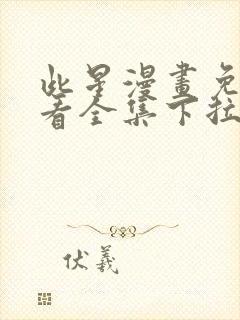 此星漫畫免
看全集下拉
伏羲